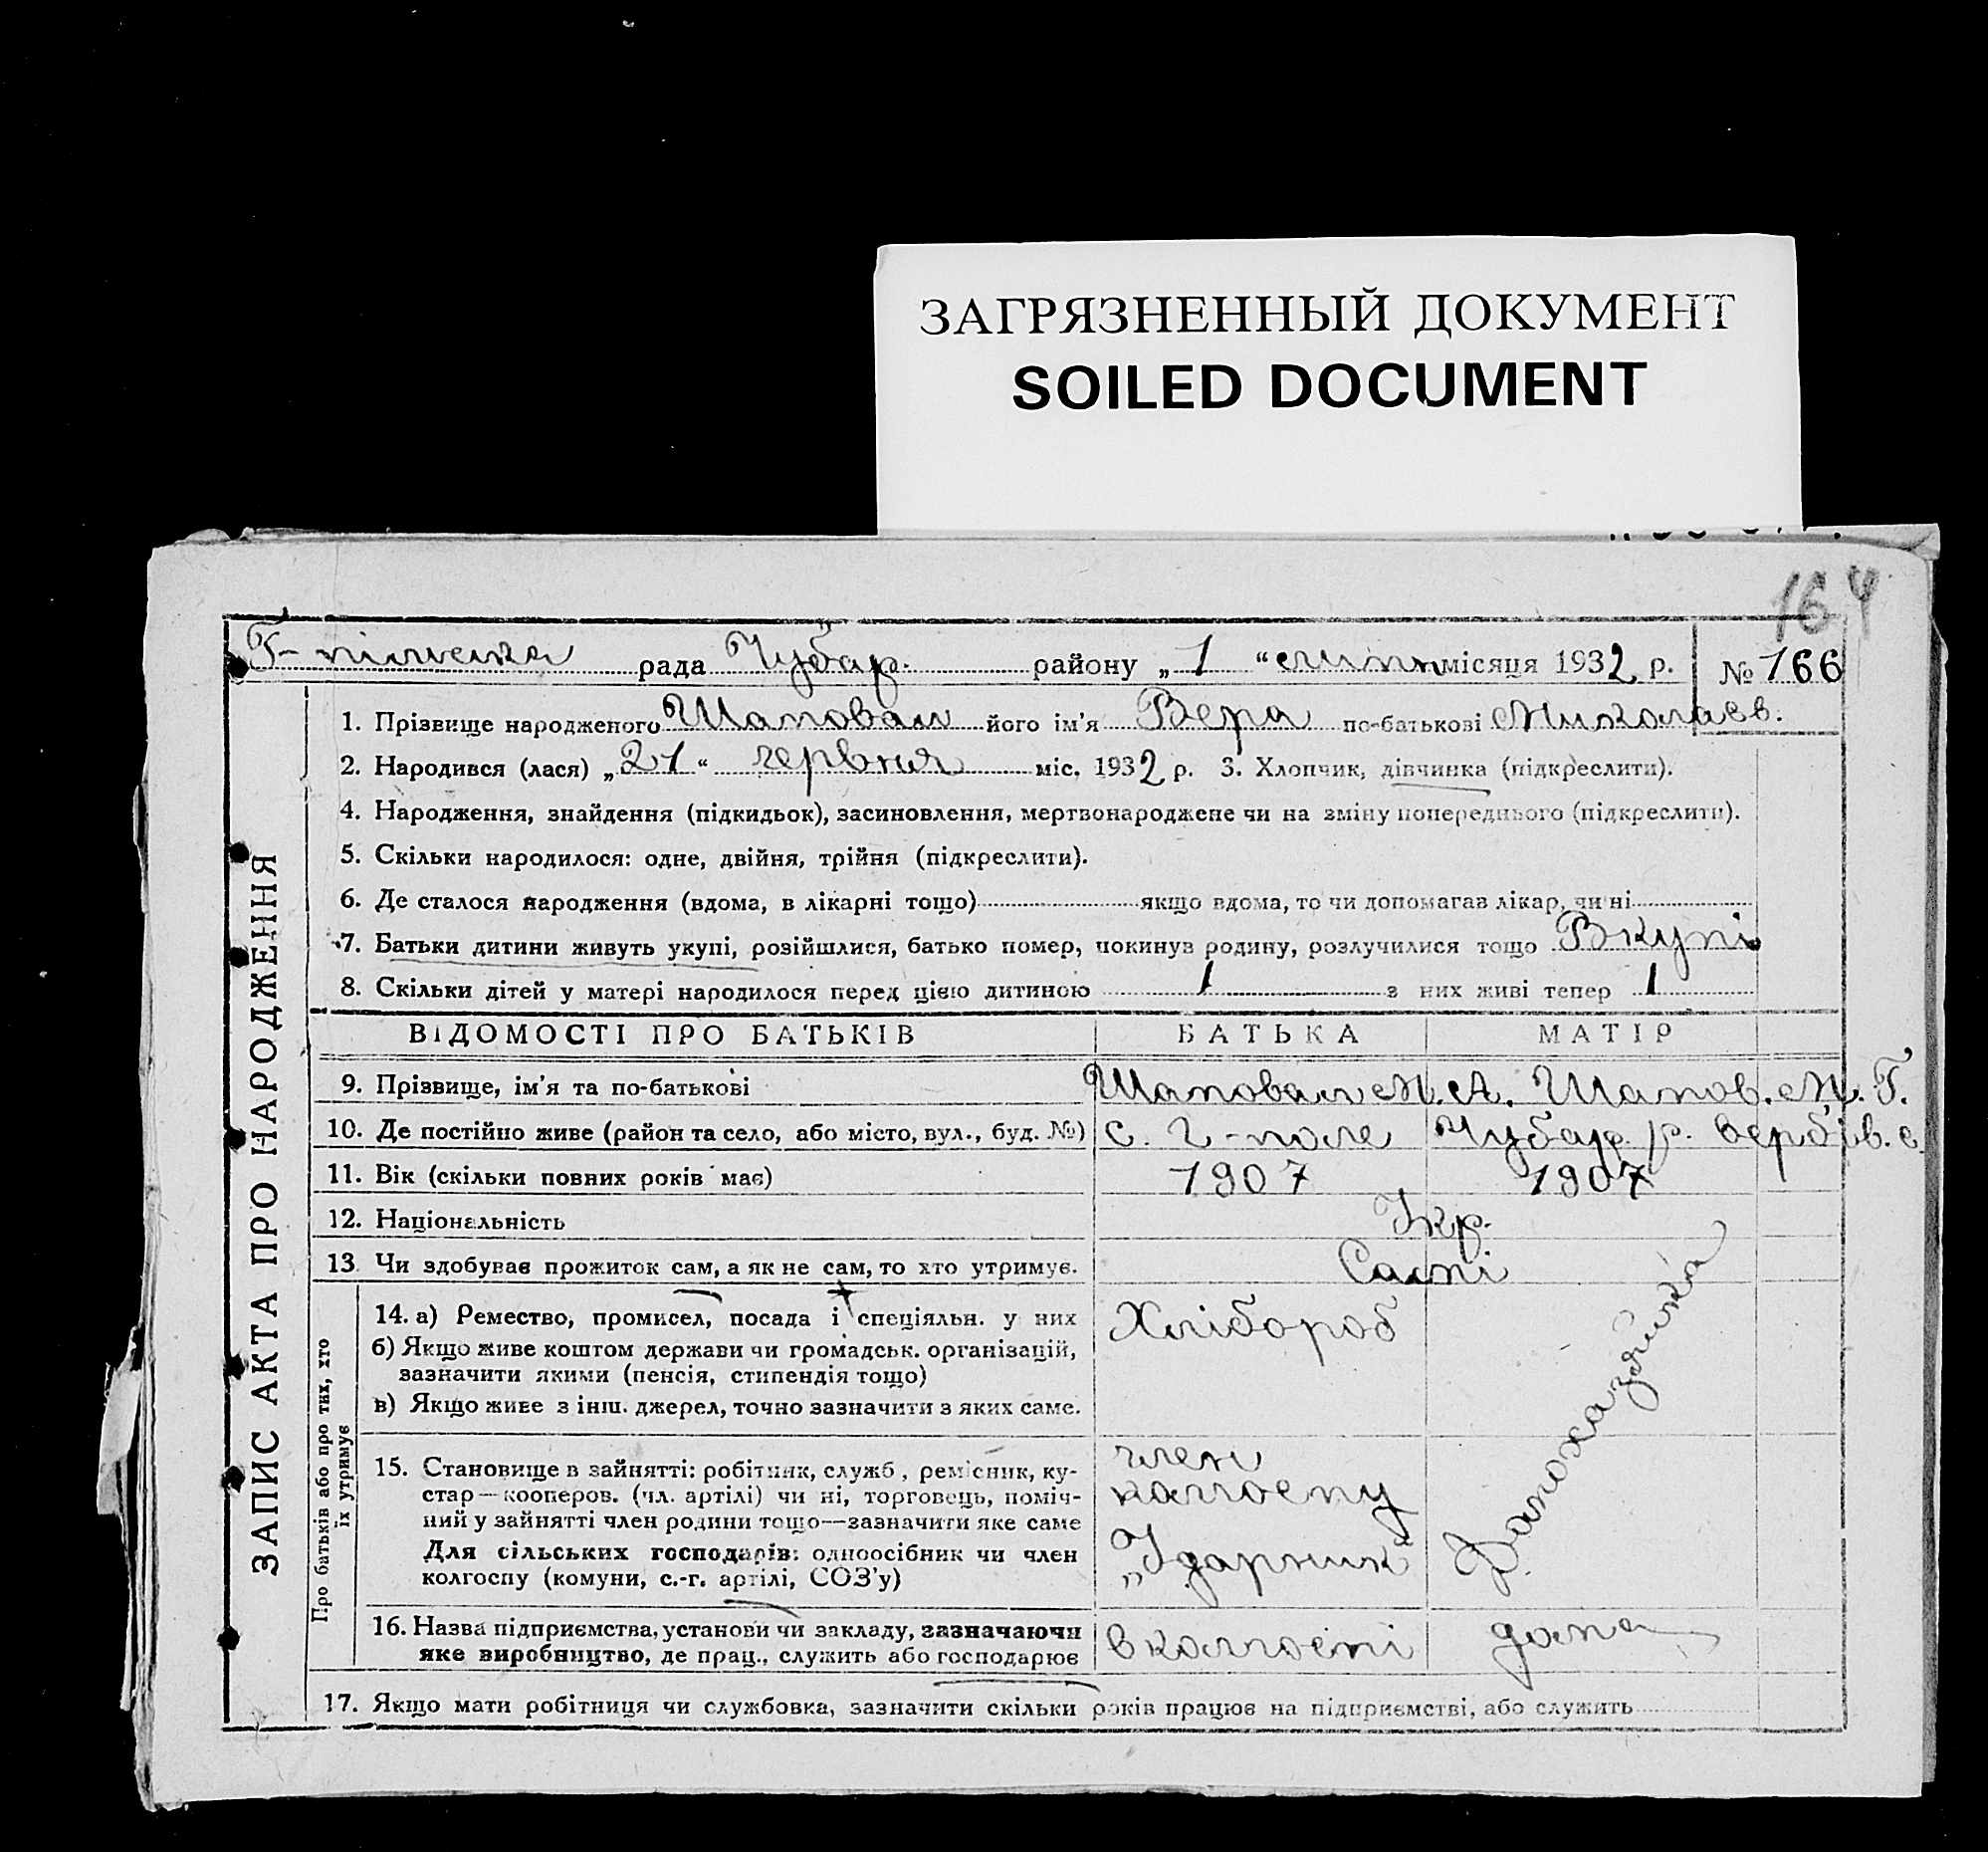 ЗАГРЯЗНЕННЫЙ ДОКУМЕНТ
SOILED DOCUMENT
164
рада Чубар. району „1“ липня місяця 1932 р. № 166
ЗАПИС АКТА ПРО НАРОДЖЕННЯ
1. Прізвище народженого Шаповал його ім'я Вера по-батькові Миколаєв.
2. Народився (лася) „21“ червня міс. 1932 р. 3. Хлопчик, дівчинка (підкреслити).
4. Народження, знайдення (підкидьок), засиновлення, мертвонароджене чи на зміну попереднього (підкреслити).
5. Скільки народилося: одне, двійня, трійня (підкреслити).
6. Де сталося народження (вдома, в лікарні тощо) якщо вдома, то чи допомагав лікар, чи ні
7. Батьки дитини живуть укупі, розійшлися, батько помер, покинув родину, розлучилися тощо Вкупі
8. Скільки дітей у матері народилося перед цією дитиною 1 з них живі тепер 1
ВІДОМОСТІ ПРО БАТЬКІВ БАТЬКА МАТІР
9. Прізвище, ім'я та по-батькові Шаповал М. А. Шапов. М. Г.
10. Де постійно живе (район та село, або місто, вул., буд. №) с. Г-поле Чубар. р. Вербів. с.
11. Вік (скільки повних років має) 1907 1907
12. Національність Укр.
13. Чи здобуває прожиток сам, а як не сам, то хто утримує. Самі
Про батьків або про тих, хто
їх утримує
14. а) Ремество, промисел, посада і спеціяльн. у них Хлібороб
б) Якщо живе коштом держави чи громадськ. організацій,
зазначити якими (пенсія, стипендія тощо)
в) Якщо живе з інш. джерел, точно зазначити з яких саме.
Домохазяйка
15. Становище в зайнятті: робітник, служб., ремісник, ку-
стар—кооперов. (чл. артілі) чи ні, торговець, поміч-
ний у зайнятті член родини тощо—зазначити яке саме
Для сільських господарів: одноосібник чи член
колгоспу (комуни, с.-г. артілі, СОЗ'у)
член
колгоспу
„Ударник"
16. Назва підприємства, установи чи закладу, зазначаючи
яке виробництво, де прац., служить або господарює
в колгоспі дома
17. Якщо мати робітниця чи службовка, зазначити скільки років працює на підприємстві, або служить